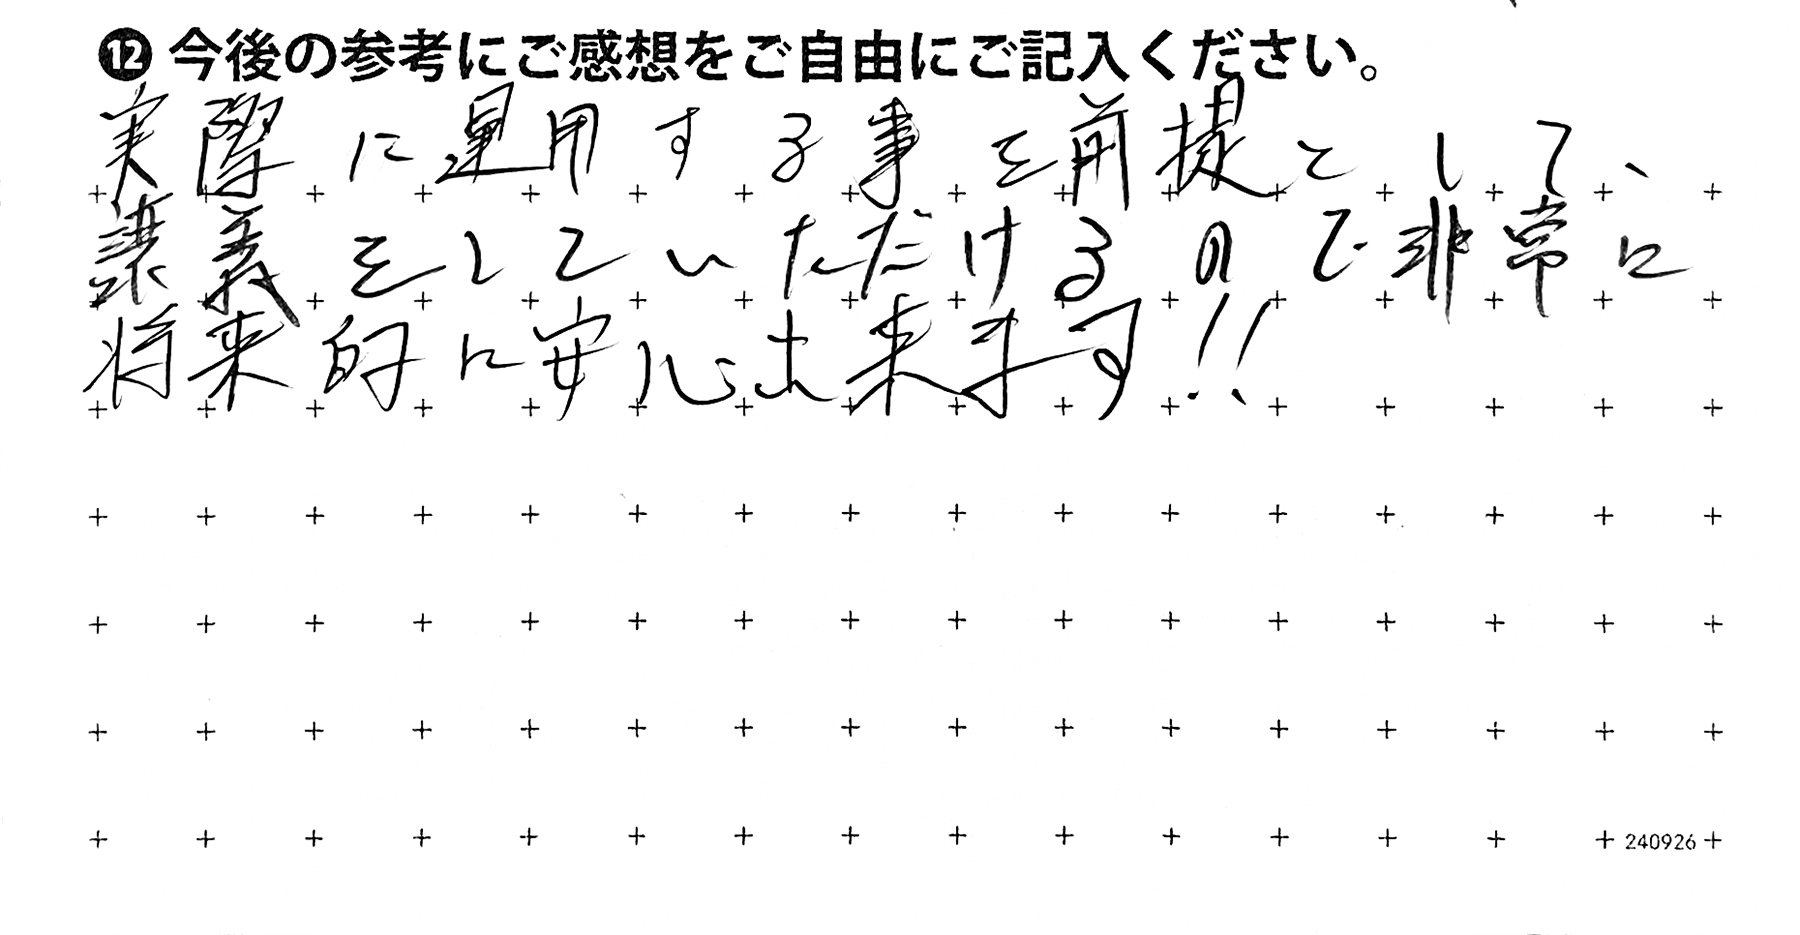 ⓬ 今後の参考にご感想をご自由にご記入ください。
実際に運用する事を前提として、
講義をしていただけるので非常に
将来的に安心出来ます!!
240926